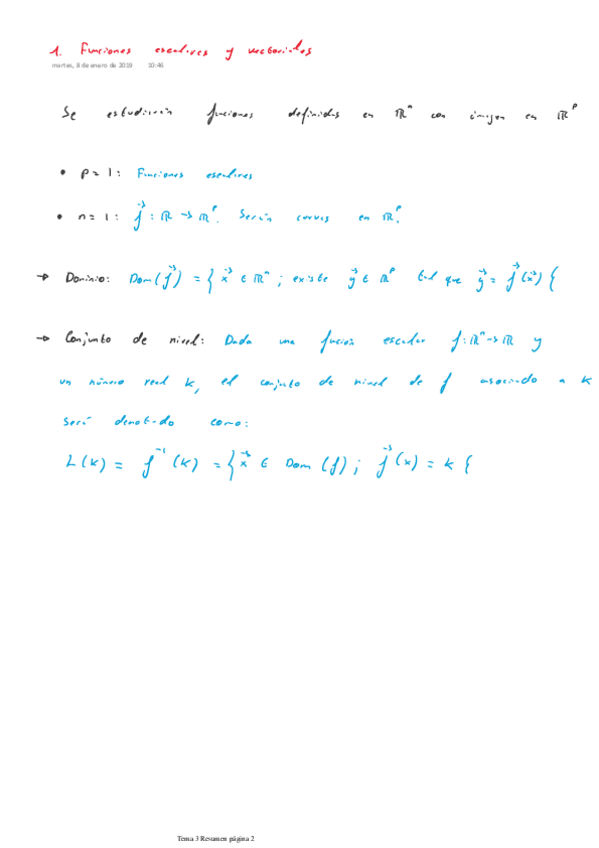 1. Funciones escalares y vectoriales
martes, 8 de enero de 2019 10:46
Se estudiarán funciones definidas en ℝⁿ con imagen en ℝᵖ
• p = 1: Funciones escalares
• n = 1: f⃗ : ℝ → ℝᵖ. Serán curvas en ℝᵖ.
→ Dominio: Dom(f⃗) = { x⃗ ∈ ℝⁿ ; existe y⃗ ∈ ℝᵖ tal que y⃗ = f⃗(x⃗) }
→ Conjunto de nivel: Dada una función escalar f: ℝⁿ → ℝ y
un número real k, el conjunto de nivel de f asociado a k
será denotado como:
L(k) = f⁻¹(k) = { x⃗ ∈ Dom(f) ; f⃗(x) = k }
Tema 3 Resumen página 2